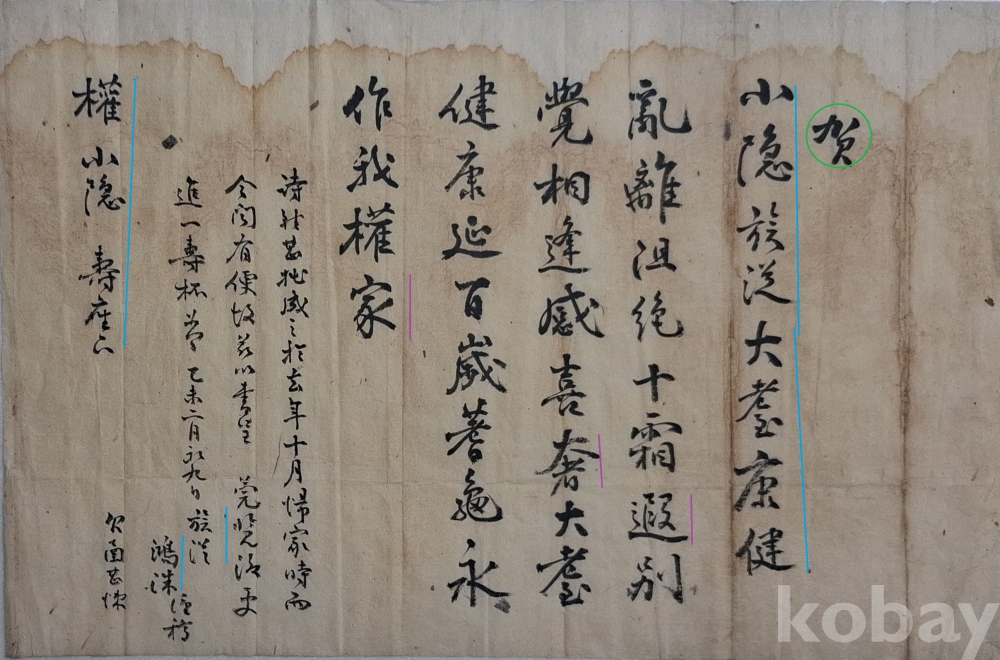 賀
小隱族從大耋康健
亂離沮絶十霜遐別
覺相逢感喜奢大耋
健康延百歲蓍龜永
作我權家
詩雖甚拙感之於去年十月歸家時而
今聞有便故茲以書呈 莞覽後更
進一壽杯 己未二月 九日 族從
鴻洙 稿
欠函甚悚
權小隱 壽座下
kobay